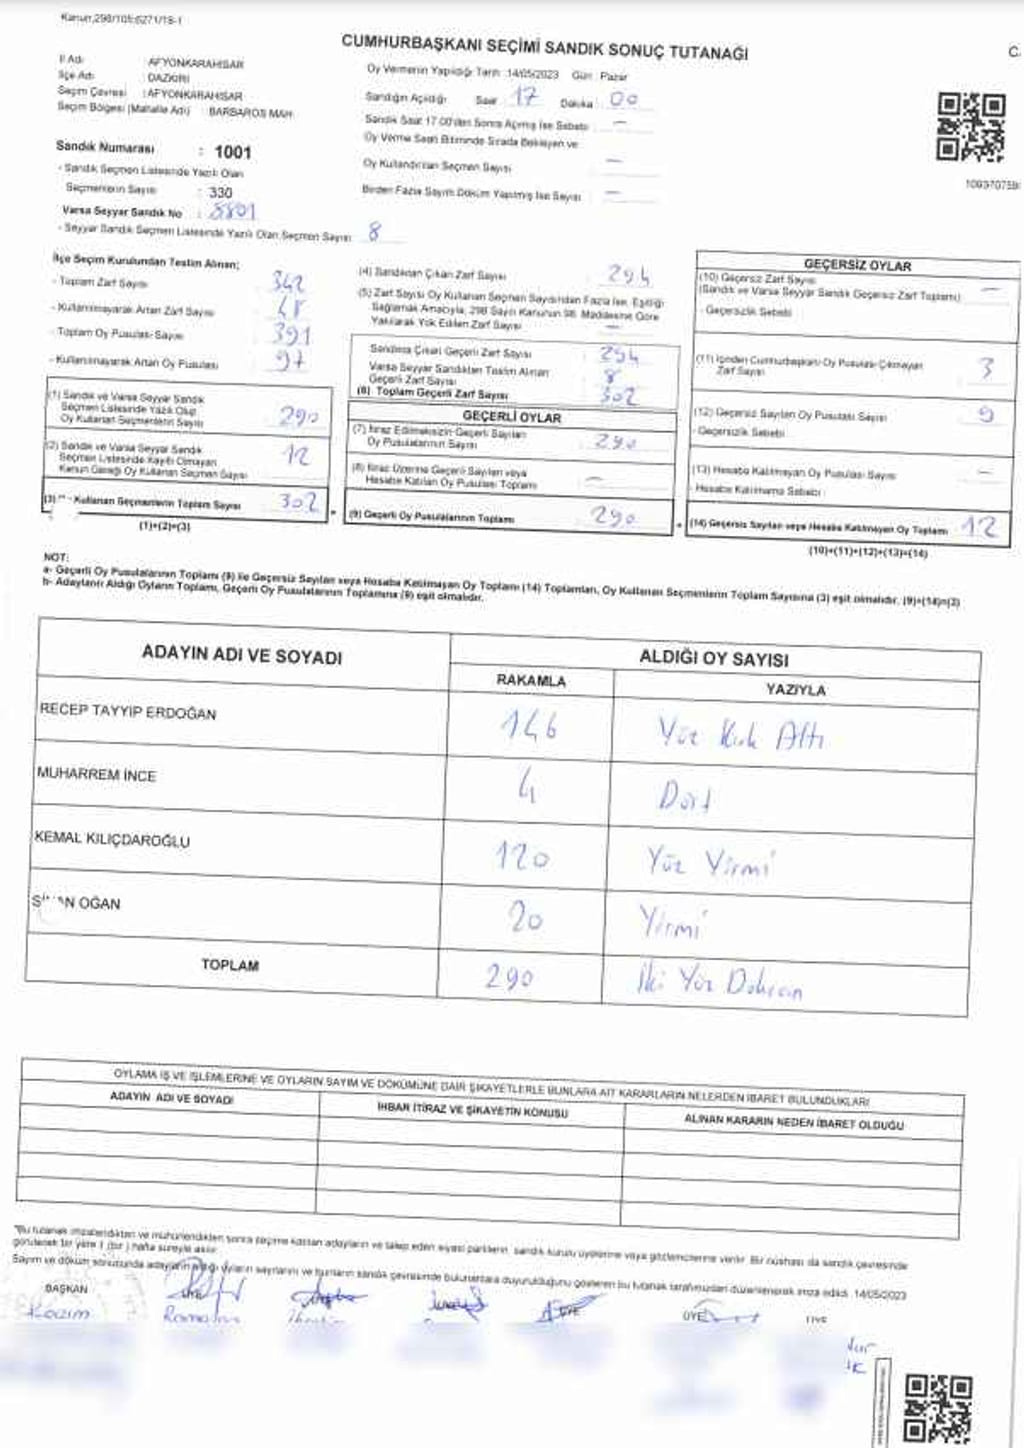 Kanun,298/105;6271/18-1
CUMHURBAŞKANI SEÇİMİ SANDIK SONUÇ TUTANAĞI
İl Adı : AFYONKARAHİSAR
İlçe Adı : DAZKIRI
Seçim Çevresi : AFYONKARAHİSAR
Seçim Bölgesi (Mahalle Adı) : BARBAROS MAH.
Sandık Numarası : 1001
- Sandık Seçmen Listesinde Yazılı Olan
Seçmenlerin Sayısı : 330
Varsa Seyyar Sandık No :
- Seyyar Sandık Seçmen Listesinde Yazılı Olan Seçmen Sayısı 8
Oy Vermenin Yapıldığı Tarih 14/05/2023 Gün : Pazar
Sandığın Açıldığı Saat 17 Dakika 00
Sandık Saat 17.00'den Sonra Açılmış İse Sebebi : —
Oy Verme Saati Bitiminde Sırada Bekleyen ve
Oy Kullandırılan Seçmen Sayısı —
Birden Fazla Sayım Döküm Yapılmış İse Sayısı : —
109370759
İlçe Seçim Kurulundan Teslim Alınan;
- Toplam Zarf Sayısı 342
- Kullanılmayarak Artan Zarf Sayısı
- Toplam Oy Pusulası Sayısı 391
- Kullanılmayarak Artan Oy Pusulası : 97
(1) Sandık ve Varsa Seyyar Sandık
Seçmen Listesinde Yazılı Olup
Oy Kullanan Seçmenlerin Sayısı 290
(2) Sandık ve Varsa Seyyar Sandık
Seçmen Listesinde Kayıtlı Olmayan
Kanun Gereği Oy Kullanan Seçmen Sayısı 12
Kullanan Seçmenlerin Toplam Sayısı 302
(1)+(2)=(3)
(4) Sandıktan Çıkan Zarf Sayısı 294
(5) Zarf Sayısı Oy Kullanan Seçmen Sayısından Fazla İse, Eşitliği
Sağlamak Amacıyla, 298 Sayılı Kanunun 98. Maddesine Göre
Yakılarak Yok Edilen Zarf Sayısı —
Sandıkta Çıkan Geçerli Zarf Sayısı : 294
Varsa Seyyar Sandıktan Teslim Alınan
Geçerli Zarf Sayısı : 8
(6) Toplam Geçerli Zarf Sayısı : 302
GEÇERLİ OYLAR
(7) İtiraz Edilmeksizin Geçerli Sayılan
Oy Pusulalarının Sayısı : 290
(8) İtiraz Üzerine Geçerli Sayılan veya
Hesaba Katılan Oy Pusulası Toplamı : —
(9) Geçerli Oy Pusulalarının Toplamı : 290
GEÇERSİZ OYLAR
(10) Geçersiz Zarf Sayısı
(Sandık ve Varsa Seyyar Sandık Geçersiz Zarf Toplamı) —
- Geçersizlik Sebebi :
(11) İçinden Cumhurbaşkanı Oy Pusulası Çıkmayan
Zarf Sayısı : 3
(12) Geçersiz Sayılan Oy Pusulası Sayısı : 9
- Geçersizlik Sebebi :
(13) Hesaba Katılmayan Oy Pusulası Sayısı —
- Hesaba Katılmama Sebebi :
(14) Geçersiz Sayılan veya Hesaba Katılmayan Oy Toplamı 12
(10)+(11)+(12)+(13)=(14)
NOT:
a- Geçerli Oy Pusulalarının Toplamı (9) ile Geçersiz Sayılan veya Hesaba Katılmayan Oy Toplamı (14) Toplamları, Oy Kullanan Seçmenlerin Toplam Sayısına (3) eşit olmalıdır. (9)+(14)=(3)
b- Adayların Aldığı Oyların Toplamı, Geçerli Oy Pusulalarının Toplamına (9) eşit olmalıdır.
ADAYIN ADI VE SOYADI ALDIĞI OY SAYISI
RAKAMLA YAZIYLA
RECEP TAYYIP ERDOĞAN 146 Yüz Kırk Altı
MUHARREM İNCE 4 Dört
KEMAL KILIÇDAROĞLU 120 Yüz Yirmi
OĞAN 20 Yirmi
TOPLAM 290 İki Yüz Doksan
OYLAMA İŞ VE İŞLEMLERİNE VE OYLARIN SAYIM VE DÖKÜMÜNE DAİR ŞİKAYETLERLE BUNLARA AİT KARARLARIN NELERDEN İBARET BULUNDUKLARI
ADAYIN ADI VE SOYADI İHBAR İTİRAZ VE ŞİKAYETİN KONUSU ALINAN KARARIN NEDEN İBARET OLDUĞU
"Bu tutanak imzalandıktan ve mühürlendikten sonra seçime katılan adayların ve talep eden siyasi partilerin, sandık kurulu üyelerine veya gözlemcilerine verilir. Bir nüshası da sandık çevresinde
görülecek bir yere 1 (bir) hafta süreyle asılır.
Sayım ve döküm sonucunda adayların aldığı oyların sayılarını ve bunların sandık çevresinde bulunanlara duyurulduğunu gösteren bu tutanak tarafımızdan düzenlenerek imza edildi. 14/05/2023
BAŞKAN ÜYE ÜYE ÜYE ÜYE
Kazım Ramazan